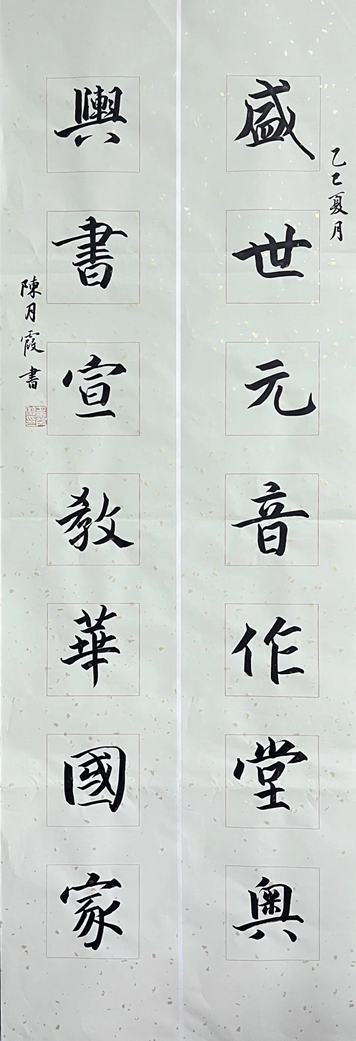 乙巳夏月
盛世元音作堂奧
輿書宣教華國家
陳月霞書